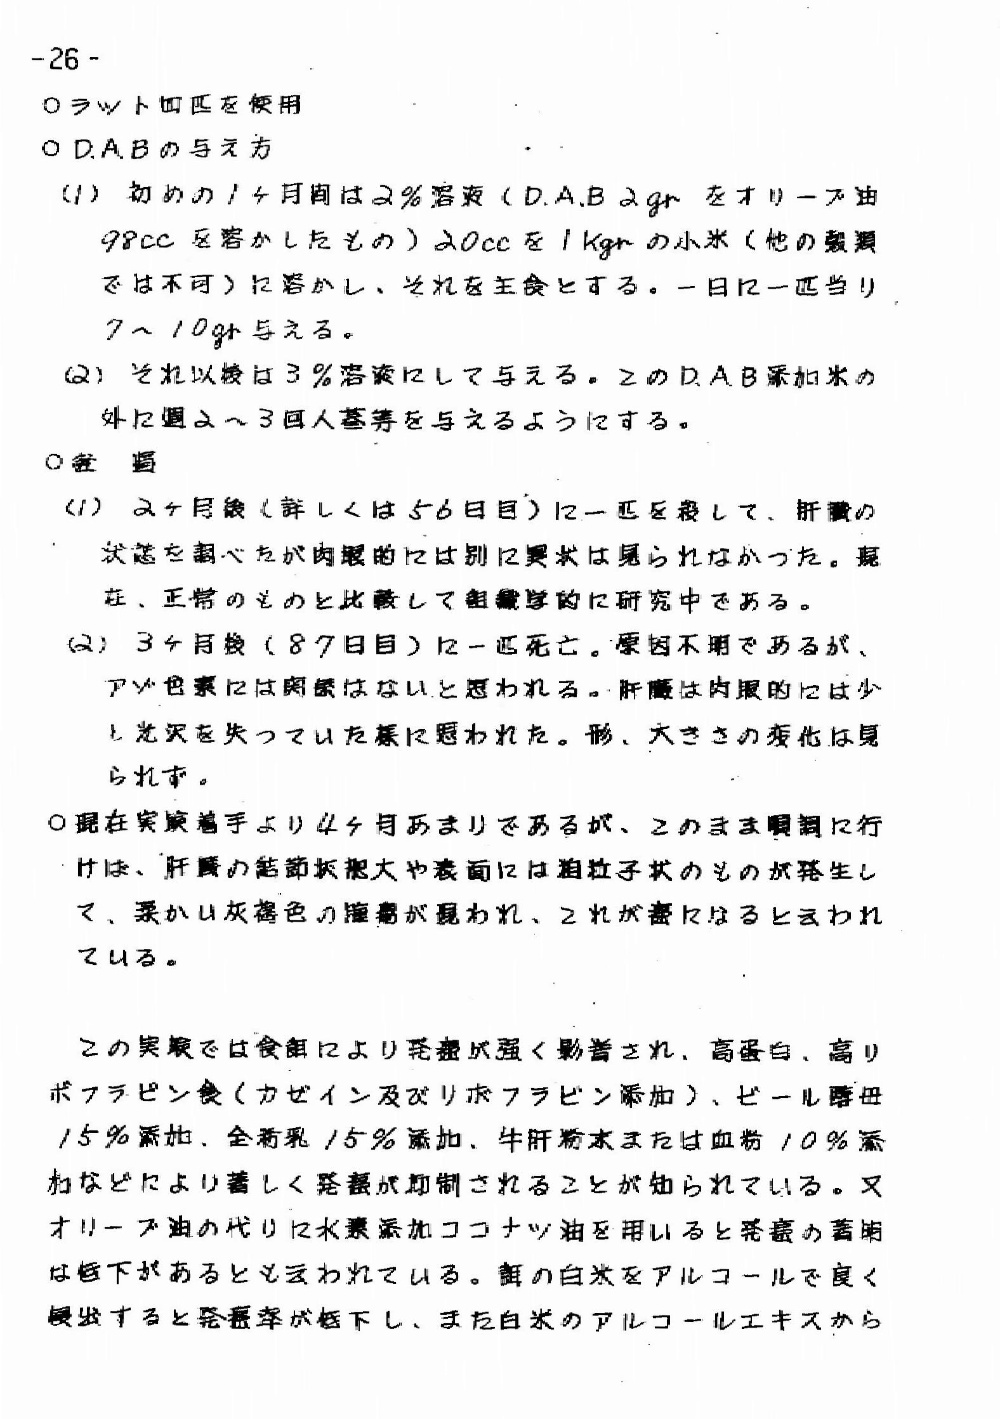 -26-
○ラット四匹を使用
○D.A.Bの与え方
(1) 初めの1ヶ月間は2%溶液(D.A.B 2gr をオリーブ油
98cc を溶かしたもの)20ccを1Kgrの小米(他の穀類
では不可)に溶かし、それを主食とする。一日に一匹当り
7〜10gr与える。
(2) それ以後は3%溶液にして与える。このD.A.B添加米の
外に週2〜3回人参等を与えるようにする。
○経 過
(1) 2ヶ月後(詳しくは56日目)に一匹を殺して、肝臓の
状態を調べたが肉眼的には別に異状は見られなかった。現
在、正常のものと比較して組織学的に研究中である。
(2) 3ヶ月後(87日目)に一匹死亡。原因不明であるが、
アゾ色素には関係はないと思われる。肝臓は肉眼的には少
し光沢を失っていた様に思われた。形、大きさの変化は見
られず。
○現在実験着手より4ヶ月あまりであるが、このまま順調に行
けば、肝臓の結節状肥大や表面には粗粒子状のものが発生し
て、柔かい灰褐色の腫瘍が現われ、これが癌になると云われ
ている。
この実験では食餌により発癌が強く影響され、高蛋白、高リ
ボフラビン食(カゼイン及びリボフラビン添加)、ビール酵母
15%添加、全粉乳15%添加、牛肝粉末または血粉10%添
加などにより著しく発癌が抑制されることが知られている。又
オリーブ油の代りに水素添加ココナツ油を用いると発癌の著明
な低下があるとも云われている。餌の白米をアルコールで良く
浸出すると発癌率が低下し、また白米のアルコールエキスから